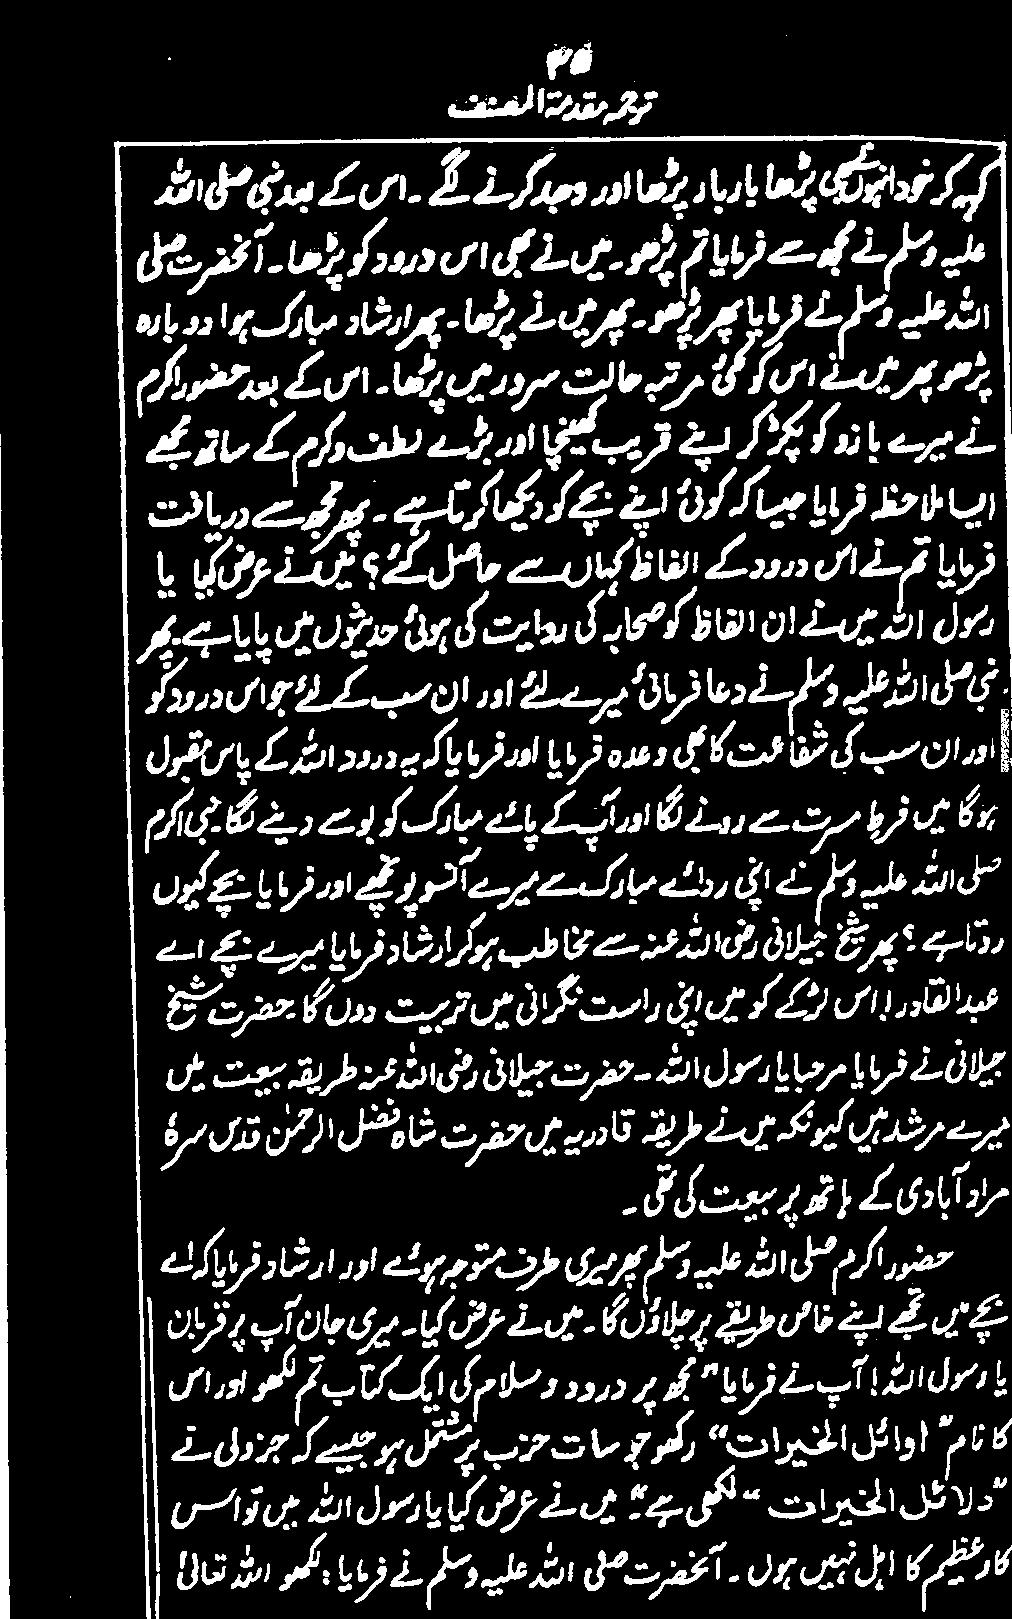 ۳۵
ترجمہ مقدمۃ المصنف
کہہ کر خود انہوں نے بھی پڑھا بار بار پڑھا اور وجد کرنے لگے ۔ اس کے بعد نبی صلی اللہ
علیہ وسلم نے مجھ سے فرمایا تم پڑھو ۔ میں نے بھی اس درود کو پڑھا ۔ آنحضرت صلی
اللہ علیہ وسلم نے فرمایا پھر پڑھو ۔ پھر میں نے پڑھا ۔ پھر ارشاد مبارک ہوا دوبارہ
پڑھو پھر میں نے اس کو کئی مرتبہ حالت سرور میں پڑھا ۔ اس کے بعد حضور اکرم
نے میرے بازو کو پکڑ کر اپنے قریب کھینچا اور بڑے لطف و کرم کے ساتھ مجھے
ایسا ملاحظہ فرمایا جیسا کہ کوئی اپنے بچے کو دیکھا کرتا ہے ۔ پھر مجھ سے دریافت
فرمایا تم نے اس درود کے الفاظ کہاں سے حاصل کئے ؟ میں نے عرض کیا یا
رسول اللہ میں نے ان الفاظ کو صحابہ کی روایت کی ہوئی حدیثوں میں پایا ہے ۔ پھر
نبی صلی اللہ علیہ وسلم نے دعا فرمائی میرے لئے اور ان سب کے لئے جو اس درود کو
اور ان سب کی شفاعت کا بھی وعدہ فرمایا اور فرمایا کہ یہ درود اللہ کے پاس مقبول
ہوگا میں فرطِ مسرت سے رونے لگا اور آپ کے پائے مبارک کو بوسے دینے لگا ۔ نبی اکرم
صلی اللہ علیہ وسلم نے اپنی ردائے مبارک سے میرے آنسو پونچھے اور فرمایا بچے کیوں
روتا ہے ؟ پھر شیخ جیلانی رضی اللہ عنہ سے مخاطب ہو کر ارشاد فرمایا میرے بچے اے
عبدالقادر ! اس لڑکے کو میں اپنی راست نگرانی میں تربیت دوں گا ۔ حضرت شیخ
جیلانی نے فرمایا مرحبا یا رسول اللہ ۔ حضرت جیلانی رضی اللہ عنہ طریقہ بیعت میں
میرے مرشد ہیں کیونکہ میں نے طریقہ قادریہ میں حضرت شاہ فضل الرحمٰن قدس سرہٗ
مرادآبادی کے ہاتھ پر بیعت کی تھی ۔
حضور اکرم صلی اللہ علیہ وسلم پھر میری طرف متوجہ ہوئے اور ارشاد فرمایا کہ اے
بچے میں تجھے اپنے خاص طریقے پر چلاؤں گا ۔ میں نے عرض کیا ۔ میری جان آپ پر قربان
یا رسول اللہ ! آپ نے فرمایا ” مجھ پر درود و سلام کی ایک کتاب تم لکھو اور اس
کا نام ” اوائل الخیرات “ رکھو جو سات حزب پر مشتمل ہو جیسے کہ جزولی نے
” دلائل الخیرات “ لکھی ہے ۔“ میں نے عرض کیا یا رسول اللہ میں تو اس
کار عظیم کا اہل نہیں ہوں ۔ آنحضرت صلی اللہ علیہ وسلم نے فرمایا : لکھو اللہ تعالیٰ